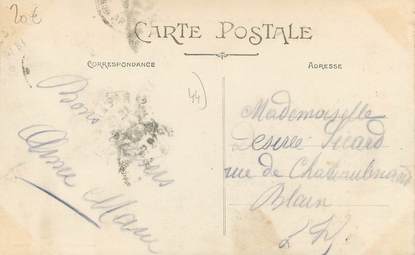 20€
CARTE POSTALE
CORRESPONDANCE
ADRESSE
44
Bons
Anne Marie
Mademoiselle
Desirée Picard
rue de Chateaubriand
Blain
L. Inf.